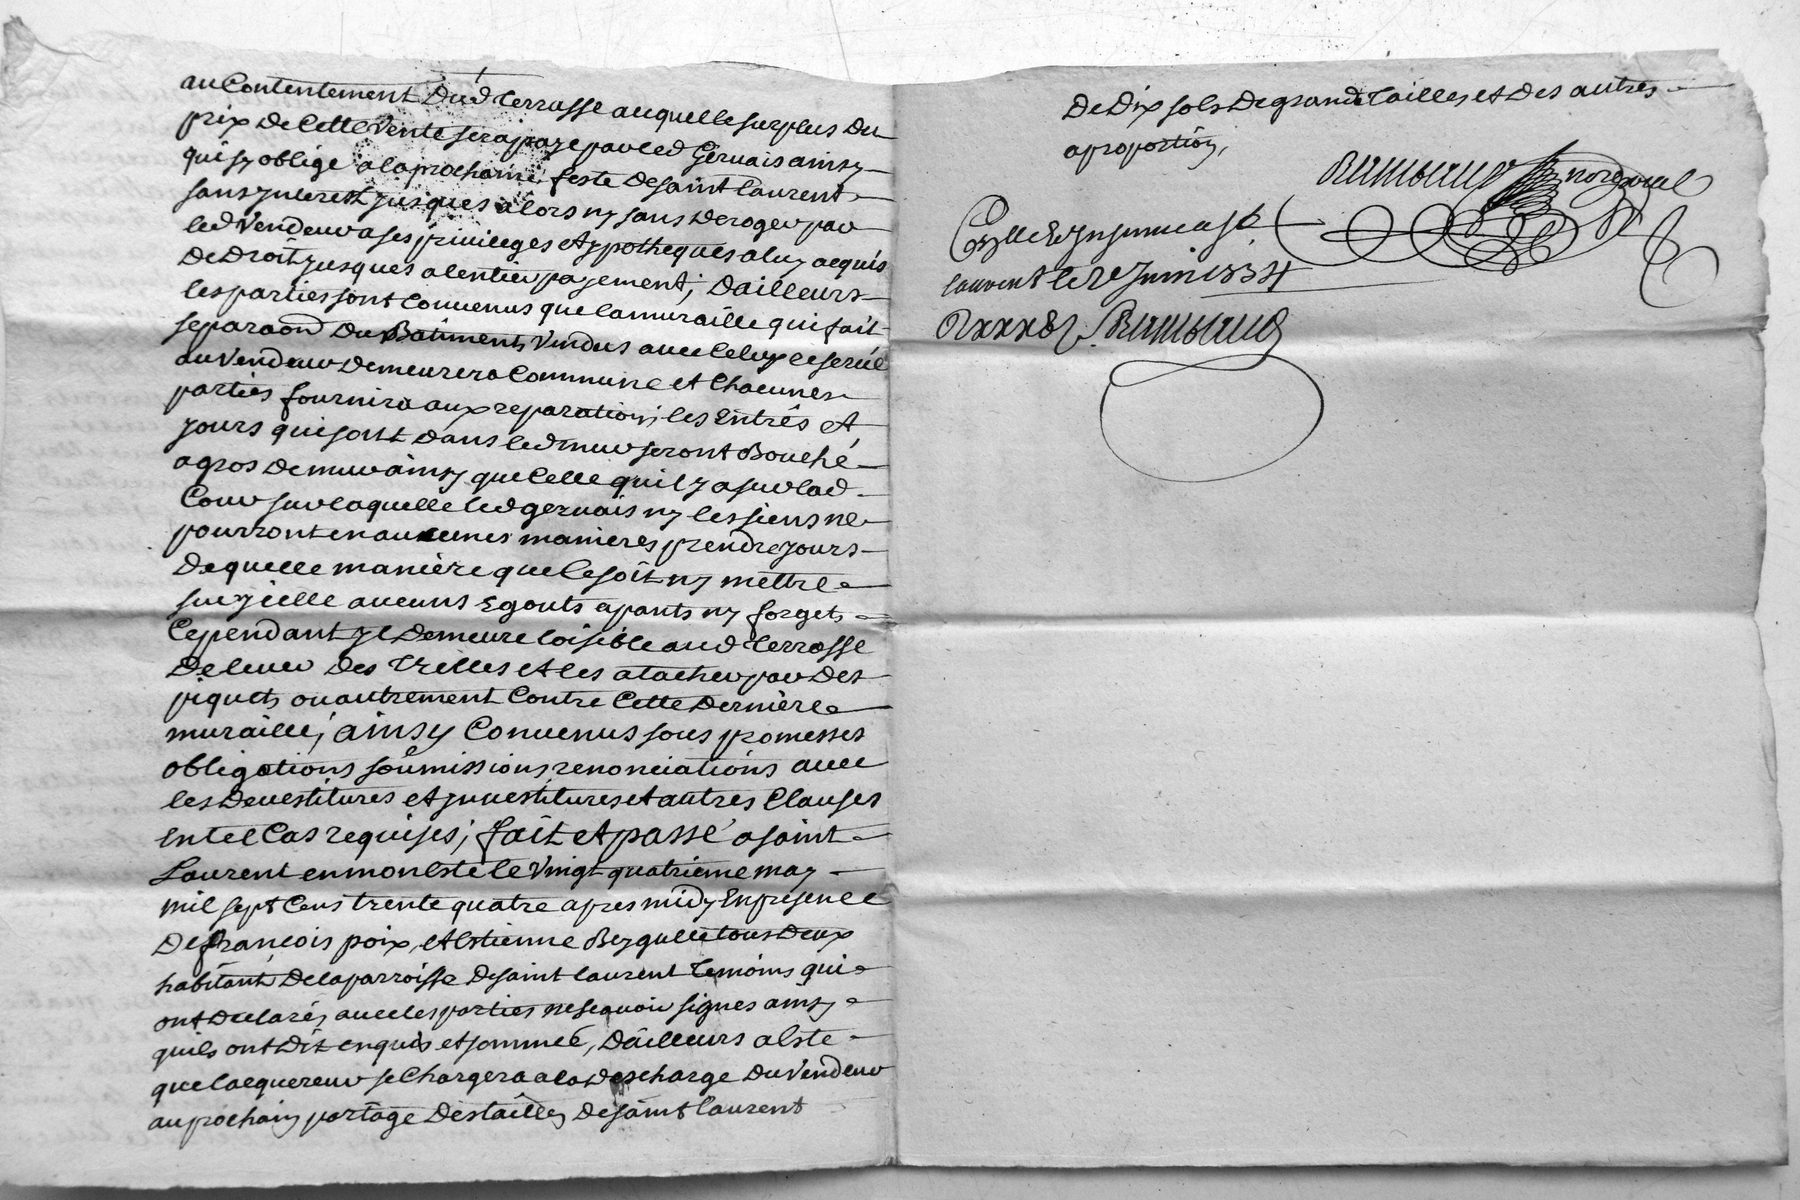 au Contentement dud terrasse auquel le surplus du
prix de Cette Vente sera paye par led Gervais ainsy
qu'il sy oblige a la prochaine feste de saint laurent
sans ynterest jusques alors ny sans deroger par
led Vendeur a ses privileges et ypotheques a luy acquis
de droit jusques a lentier payement; dailleurs
les parties sont Convenus que la muraille qui fait
separaon du Batiment Vendus avec Celuy reservé
au Vendeur demeurera Commune et Chacunes
parties fournira aux reparations, les Entrés et
jours qui sont dans led mur seront Bouché
a gros de mur ainsy que Celle quil y a sur lad
Cour sur laquelle led gervais ny les siens ne
pourront en aucunes manieres prendre jours
de quelle manière que Ce soit ny mettre
sur ycelle aucuns Egouts apants ny forgets
Cependant yl demeure loisible aud terrasse
delever des trilles et les atacher par des
piquets ou autrement Contre Cette dernière
muraille; ainsy Convenus sous promesses
obligations soumissions renonciations avec
les devestitures et ynvestitures et autres Clauses
En tel Cas requises; fait et passé a saint
Laurent en mon Esté le vingt quatrieme may
mil sept Cens trente quatre apres midy En presence
de françois poix, et Estienne Beyquelle tous deux
habitants de la parroisse de saint laurent temoins qui
ont declarés avec les parties ne sçavoir signes ainsy
quils ont dit enquis et sommeé, dailleurs a Esté
que lacquereur se Chargera a la descharge du Vendeur
au prochain partage des tailles de saint laurent
de dix sols de grande tailles et des autres
a proportion,
Rambaud no roial
Con​​llé & ynsinué a St
laurent le 2e Juin 1734
Rambaud